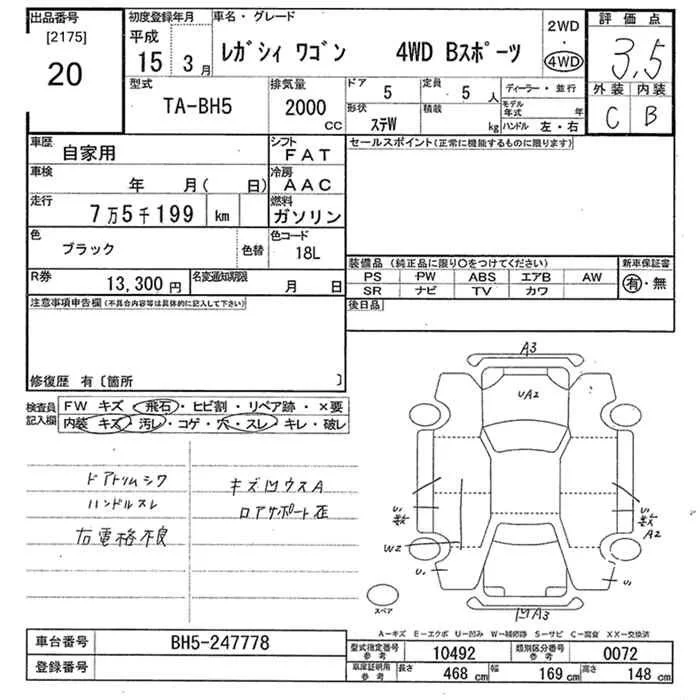 出品番号
[2175]
20
初度登録年月
平成
15 3月
車名・グレード
レガシィ ワゴン 4WD Bスポーツ
2WD
・
4WD
評価点
3.5
外装 内装
C B
型式
TA-BH5
排気量
2000
CC
ドア
5
定員
5 人
形状
ステW
積載
kg
ディーラー・並行
モデル年式 年
ハンドル 左・右
車歴
自家用
シフト
FAT
車検
年 月( 日)
冷房
AAC
走行
7万5千199 km
燃料
ガソリン
色
ブラック
色替
色コード
18L
R券
13,300 円
名変通知期限
月 日
セールスポイント(正常に機能するものに限ります)
装備品 (純正品に限り○をつけてください)
PS PW ABS エアB AW
SR ナビ TV カワ
新車保証書
有・無
後日品
注意事項申告欄(不具合内容等は具体的に記入して下さい)
修復歴 有〔箇所 〕
検査員記入欄
FW キズ・飛石・ヒビ割・リペア跡・×要
内装 キズ・汚レ・コゲ・穴・スレ・キレ・破レ
ドアトリムシワ
ハンドルスレ
右電格不良
キズ凹ウスA
ロアサポート歪
A3
UA2
U1
U1
A2
W2
U1
U1
凹A3
スペア
A-キズ E-エクボ U-凹み W-補修跡 S-サビ C-腐食 XX-交換済
車台番号
BH5-247778
登録番号
型式指定番号
参考
10492
類別区分番号
参考
0072
車庫証明用
参考
長さ
468 cm
幅
169 cm
高さ
148 cm